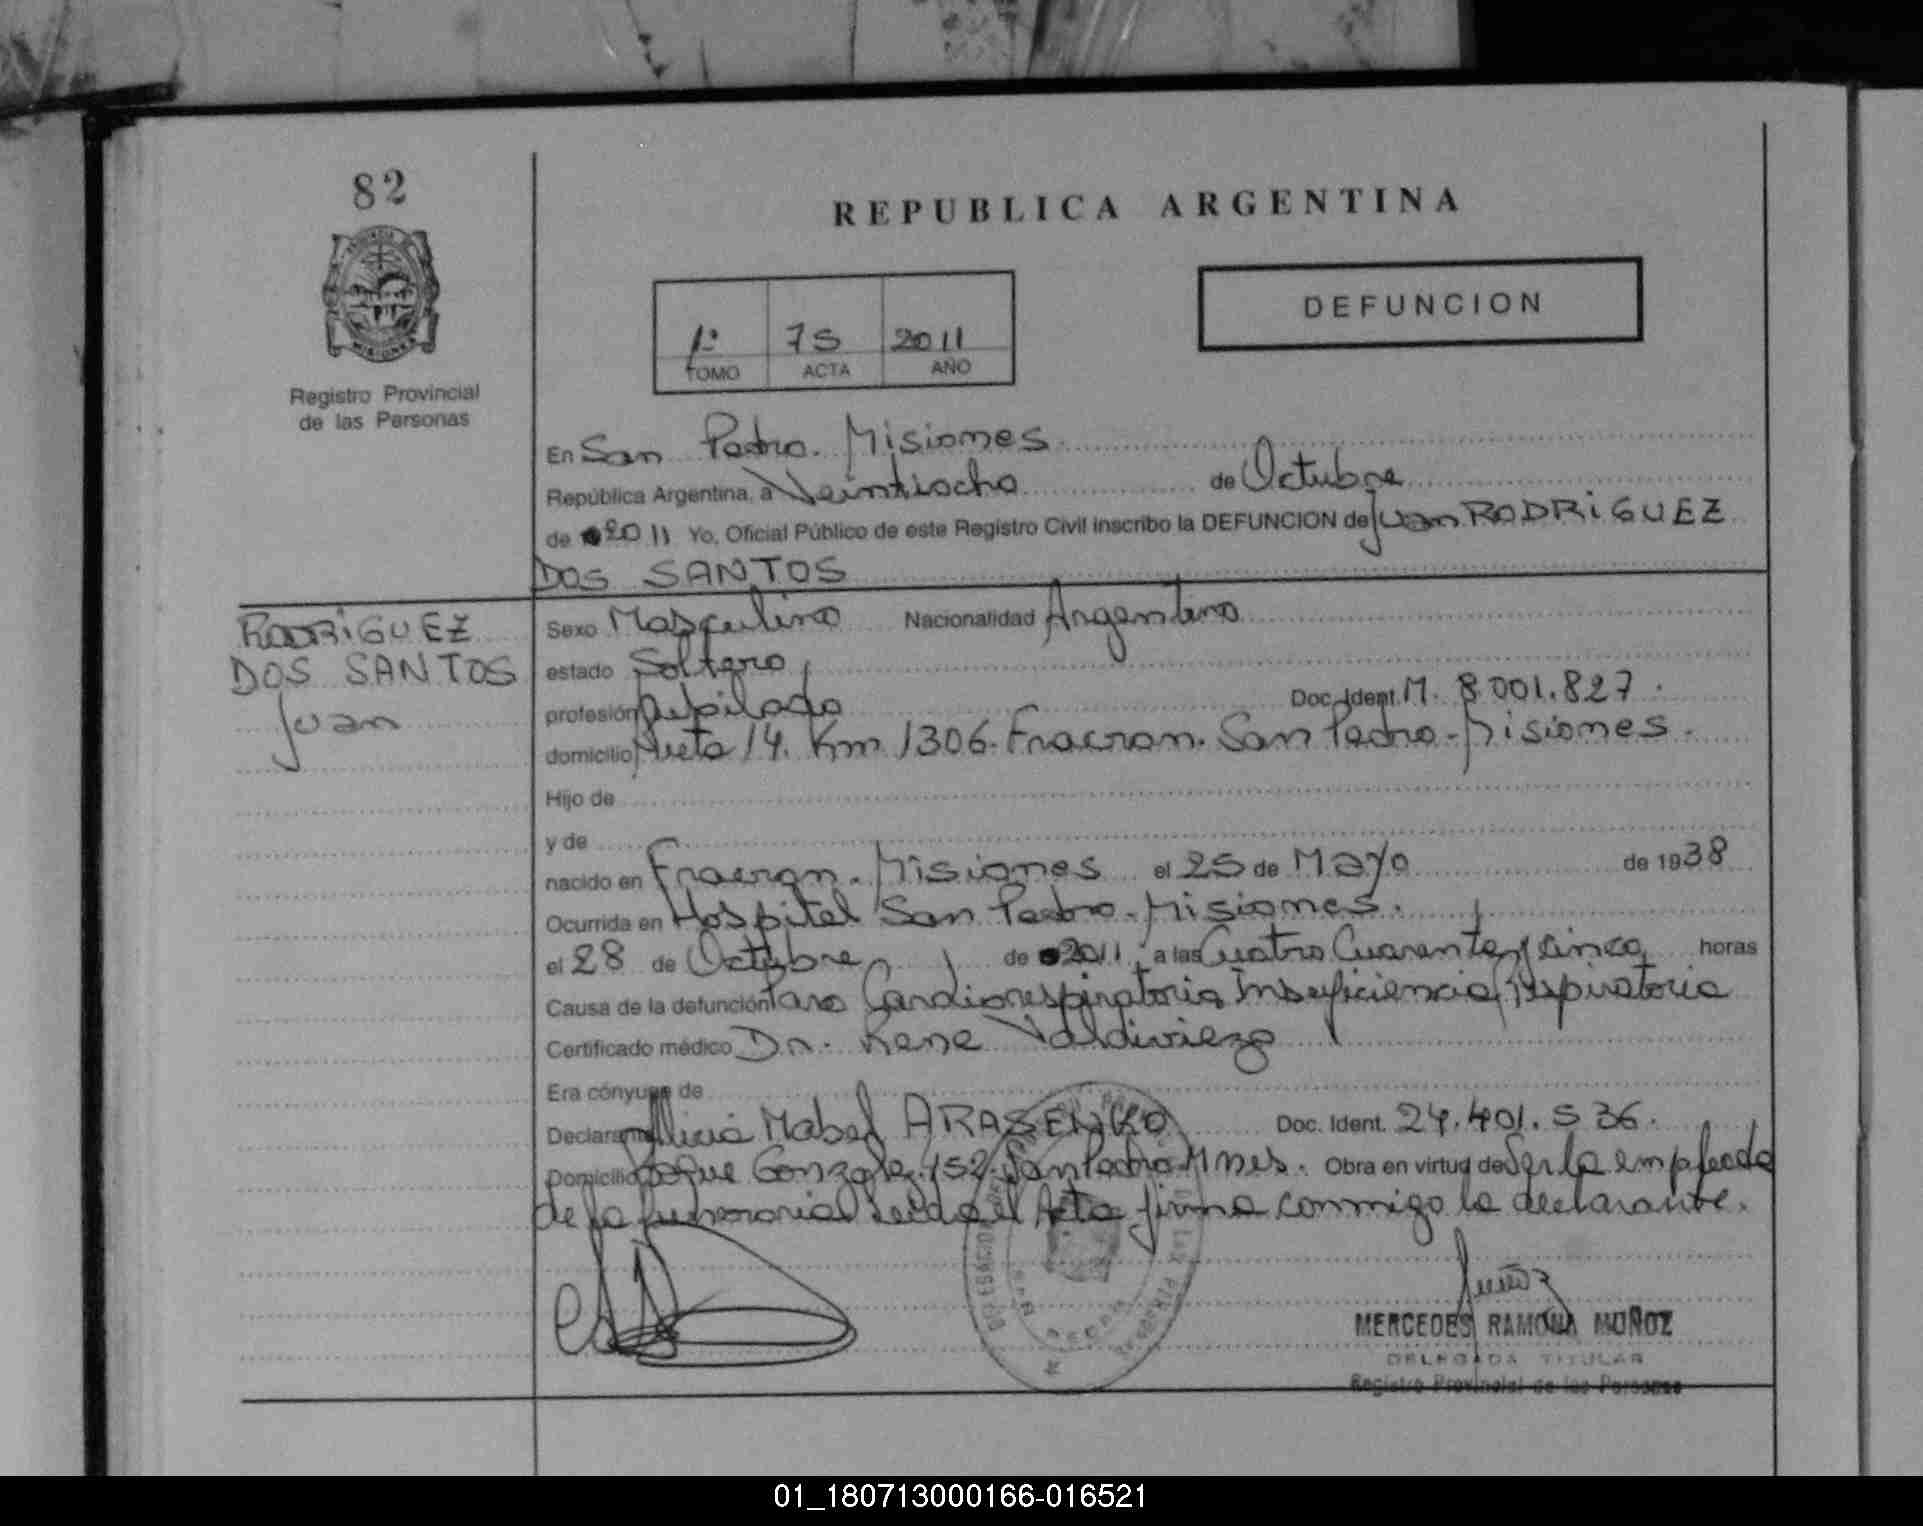 82
REPUBLICA ARGENTINA
DEFUNCION
1º 75 2011
TOMO ACTA AÑO
Registro Provincial
de las Personas
En San Pedro. Misiones
República Argentina, a Veintiocho de Octubre
de 2011 Yo, Oficial Público de este Registro Civil inscribo la DEFUNCION de Juan RODRIGUEZ
DOS SANTOS
RODRIGUEZ
DOS SANTOS
Juan
Sexo Masculino Nacionalidad Argentino
estado Soltero
profesión Jubilado Doc. Ident. M. 8.001.827.
domicilio Ruta 14. Km 1306. Fracran. San Pedro. Misiones.
Hijo de
y de
nacido en Fracran. Misiones el 25 de Mayo de 1938
Ocurrida en Hospital San Pedro. Misiones.
el 28 de Octubre de 2011 a las Cuatro Cuarenta y cinco horas
Causa de la defunción Paro Cardiorespiratorio Insuficiencia Respiratoria
Certificado médico Dr. Rene Valdiviezo
Era cónyuge de
Declarante Alicia Mabel ARASENKO Doc. Ident. 24.401.536.
Domicilio Roque Gonzalez 152. San Pedro Mnes. Obra en virtud de Ser la empleada
de la funeraria Leida el Acta firma conmigo la declarante.
MERCEDES RAMONA MUÑOZ
DELEGADA TITULAR
Registro Provincial de las Personas
01_180713000166-016521